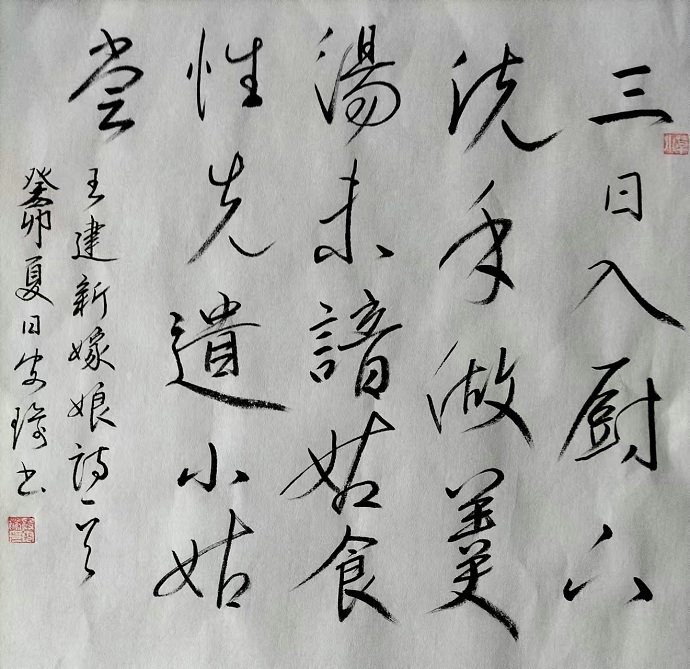 三日入厨下
洗手做羹
湯未諳姑食
性先遺小姑
尝
王建新嫁娘詩一首
癸卯夏日书